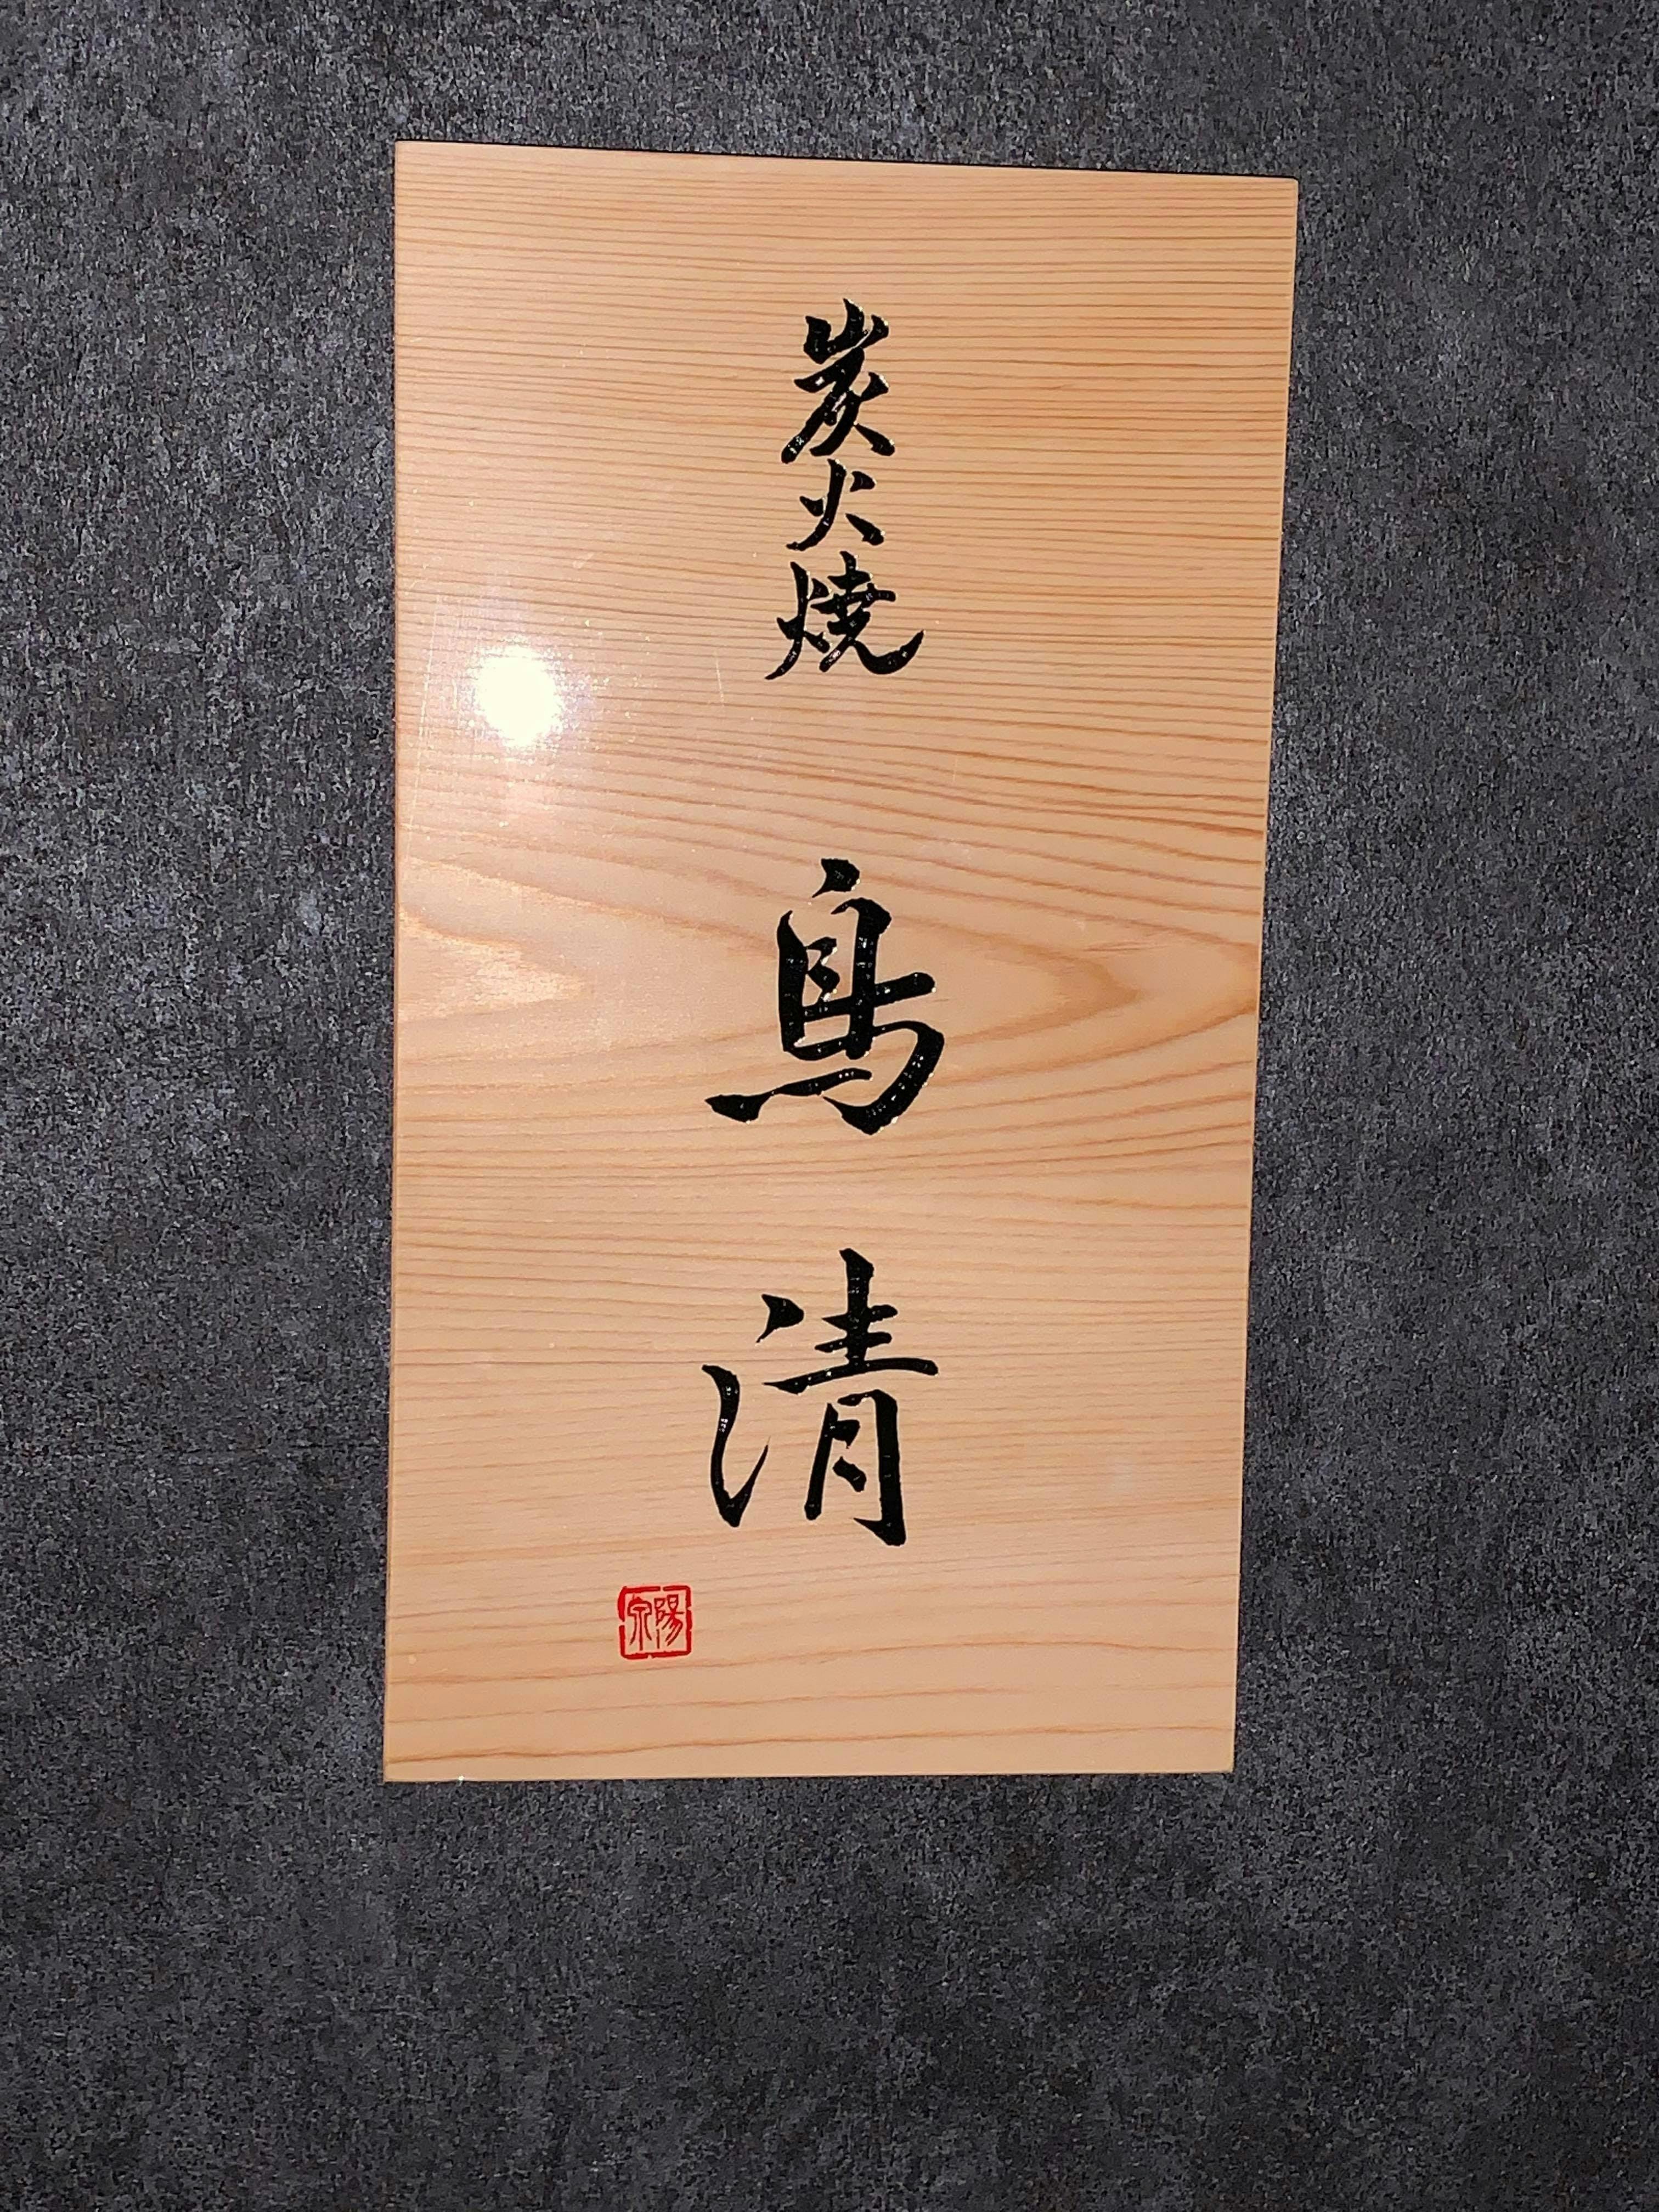 炭火焼
鳥清
陽泉